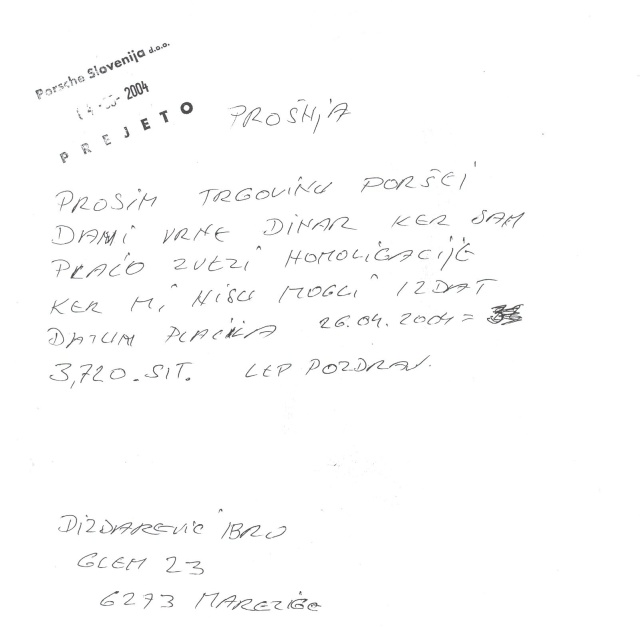 Porsche Slovenija d.o.o.
2004
PREJETO
PROŠNJA
PROSIM TRGOVINU PORŠEJ
DAMI VRNE DINAR KER SAM
PLAĆO ZVEZI HOMOLIGACIJE
KER MI NISU MOGLI IZDAT
DATUM PLAĆILA 26.04.2004 =
3,720.SIT. LEP POZDRAV.
DIZDAREVIĆ IBRO
GLEM 23
6273 MAREZIGE